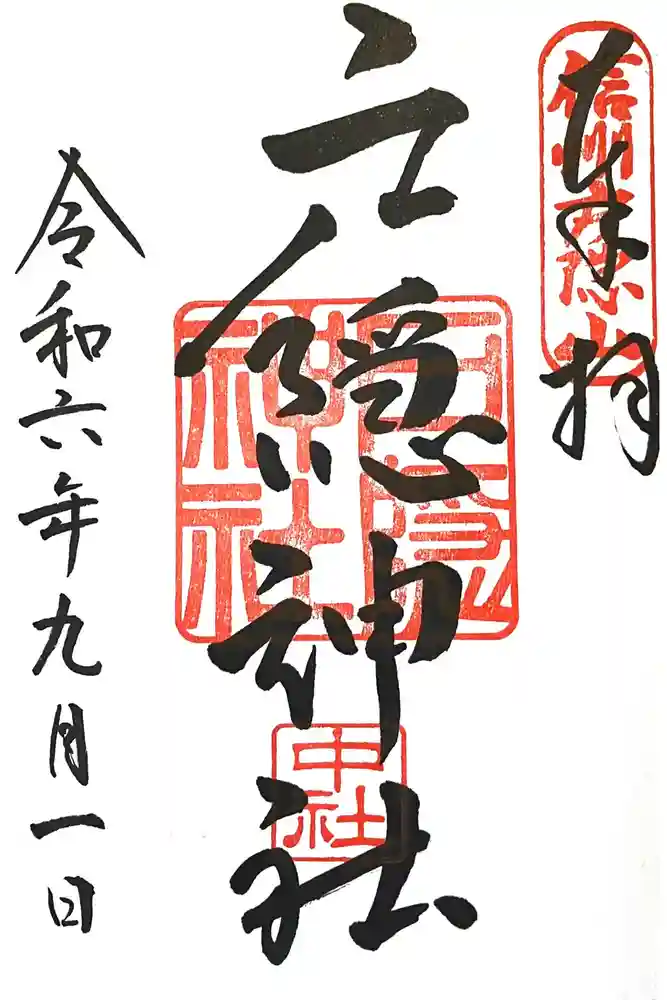 奉拝
信州戸隠山
戸隠神社
戸隠神社
中社
令和六年九月一日